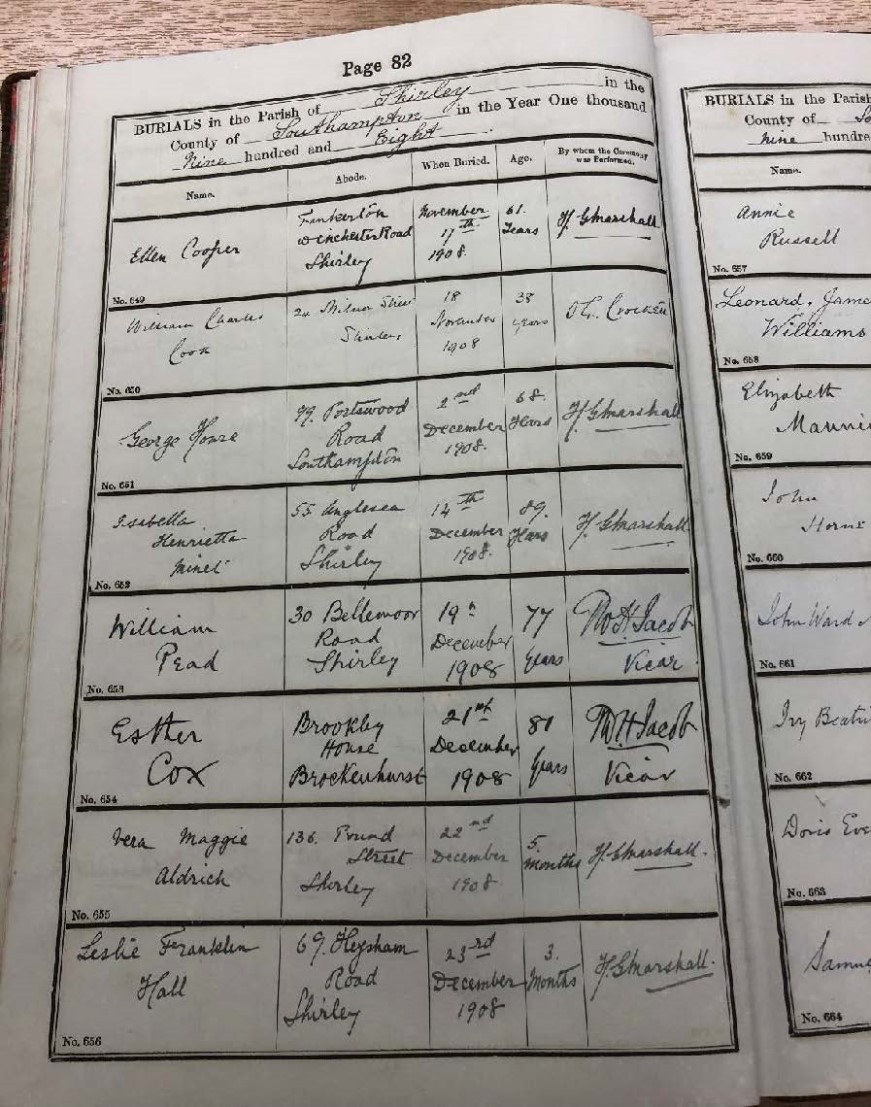 Page 82
BURIALS in the Parish of Shirley in the
County of Southampton in the Year One thousand
Nine hundred and Eight.
Name. Abode. When Buried. Age. By whom the Ceremony was Performed.
Ellen Cooper
Winchester Road
Shirley
November
17th
1908.
61.
Years
H. G. Marshall.
No. 649
William Charles
Cook
Street
Shirley
18
November
1908
38
years
No. 650
George
99. Portswood
Road
Southampton
2nd
December
1908.
68.
Years
H. G. Marshall
No. 651
Isabella
Henrietta
55 Anglesea
Road
Shirley
14th
December
1908.
89.
Years
H. G. Marshall.
No. 652
William
Pead
30 Bellemoor
Road
Shirley
19th
December
1908
77
Years
H. Jacob
Vicar
No. 653
Esther
Cox
Brookley
House
Brockenhurst
21st
December
1908
81
Years
H. Jacob
Vicar
No. 654
Vera Maggie
Aldrich
136. Pound
Street
Shirley
22nd
December
1908
5.
months
H. G. Marshall.
No. 655
Leslie Franklin
Hall
69. Heysham
Road
Shirley
23rd
December
1908
3.
Months
H. G. Marshall.
No. 656
BURIALS in the Parish
County of
Nine hundre
Name.
Annie
Russell
No. 657
Leonard. Jame
Williams
No. 658
Elizabeth
Manni
No. 659
John
Horne
No. 660
John Ward
No. 661
Ivy Beatri
No. 662
Doris Eve
No. 663
Samu
No. 664